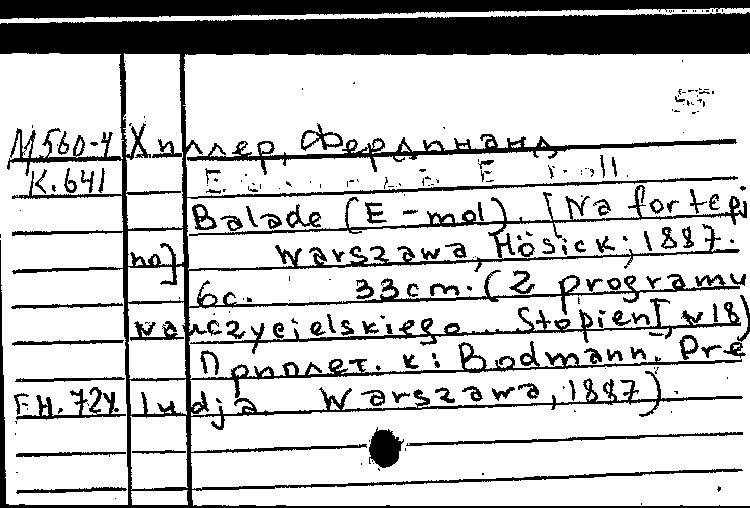 М560-4 Хиллер, Фердинанд
К.641
Balade (E-mol). [Na fortepi
no] Warszawa, Hösick; 1887.
6c. 33cm. (Z programu
nauczycielskiego... Stopień I, N 18)
Приплет. к: Bodmann. Pre
ЕН.724. ludja. Warszawa, 1887).